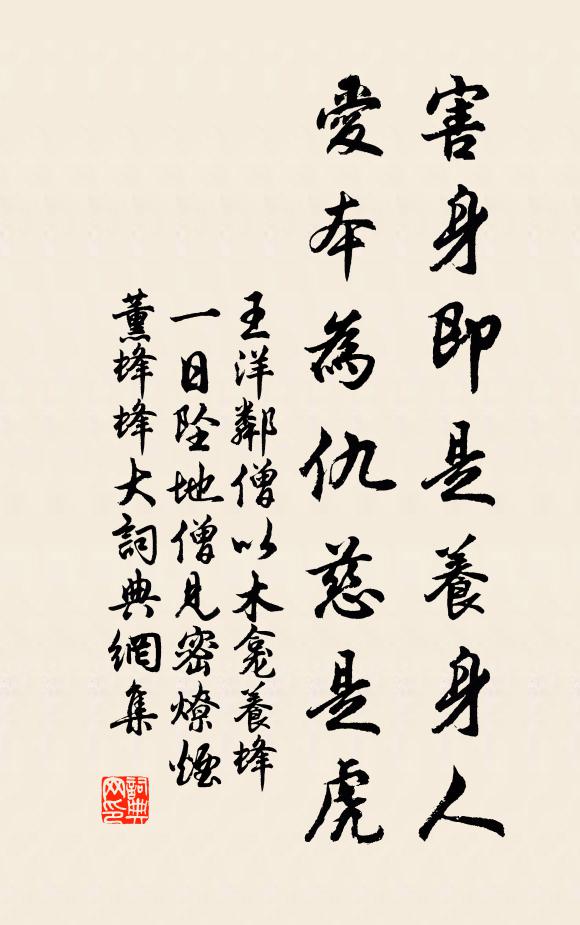 害身即是養身人
愛本為仇慈是虎
王洋鄰僧以木龕養蜂
一日墜地僧見密燎煙
薰蜂蜂大詞典網集
詞典网印